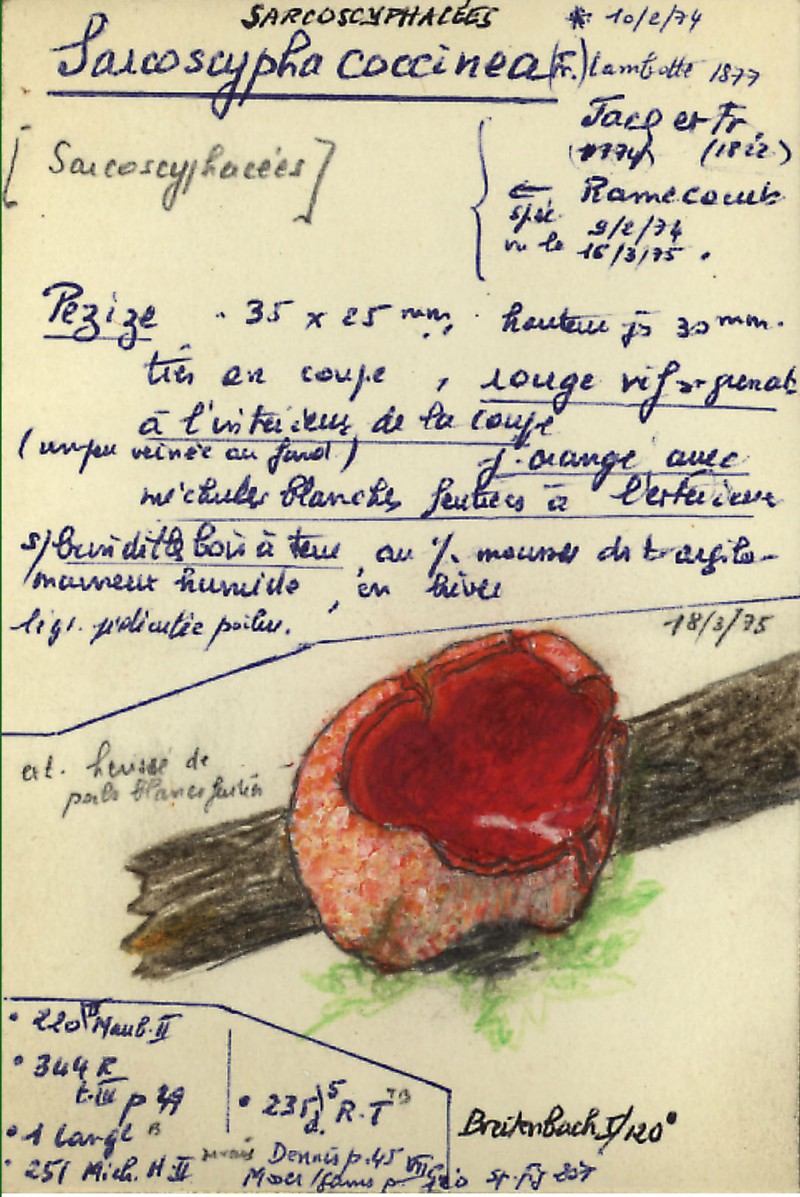 SARCOSCYPHACÉES * 10/2/74
Sarcoscypha coccinea (Fr.) Lambotte 1877
Jacq er Fr
(1774) (1822)
[Sarcoscyphacées]
← Ramecourt
spéc. 9/2/74
vu le 16/3/75.
Pezize . 35 x 25 mm, hauteur js 30 mm.
très en coupe, rouge vif grenat
à l'intérieur de la coupe
(un peu veinée au fond) j. orangé avec
méchules blanches feutrées à l'extérieur
s/ bois à terre, au mousses argilo-
marneux humide, en hiver
lég. pédiculée poilue.
18/3/75
ext. hérissé de
poils blancs feutrés
• 220 Maub. II
• 344 R
t. III p 29
• 1 Lange B
• 251 Mich. H II
• 235 5 d. R.T
Dennis p. 45
Moser/Gams p
sp. fig
Breitenbach I/120°